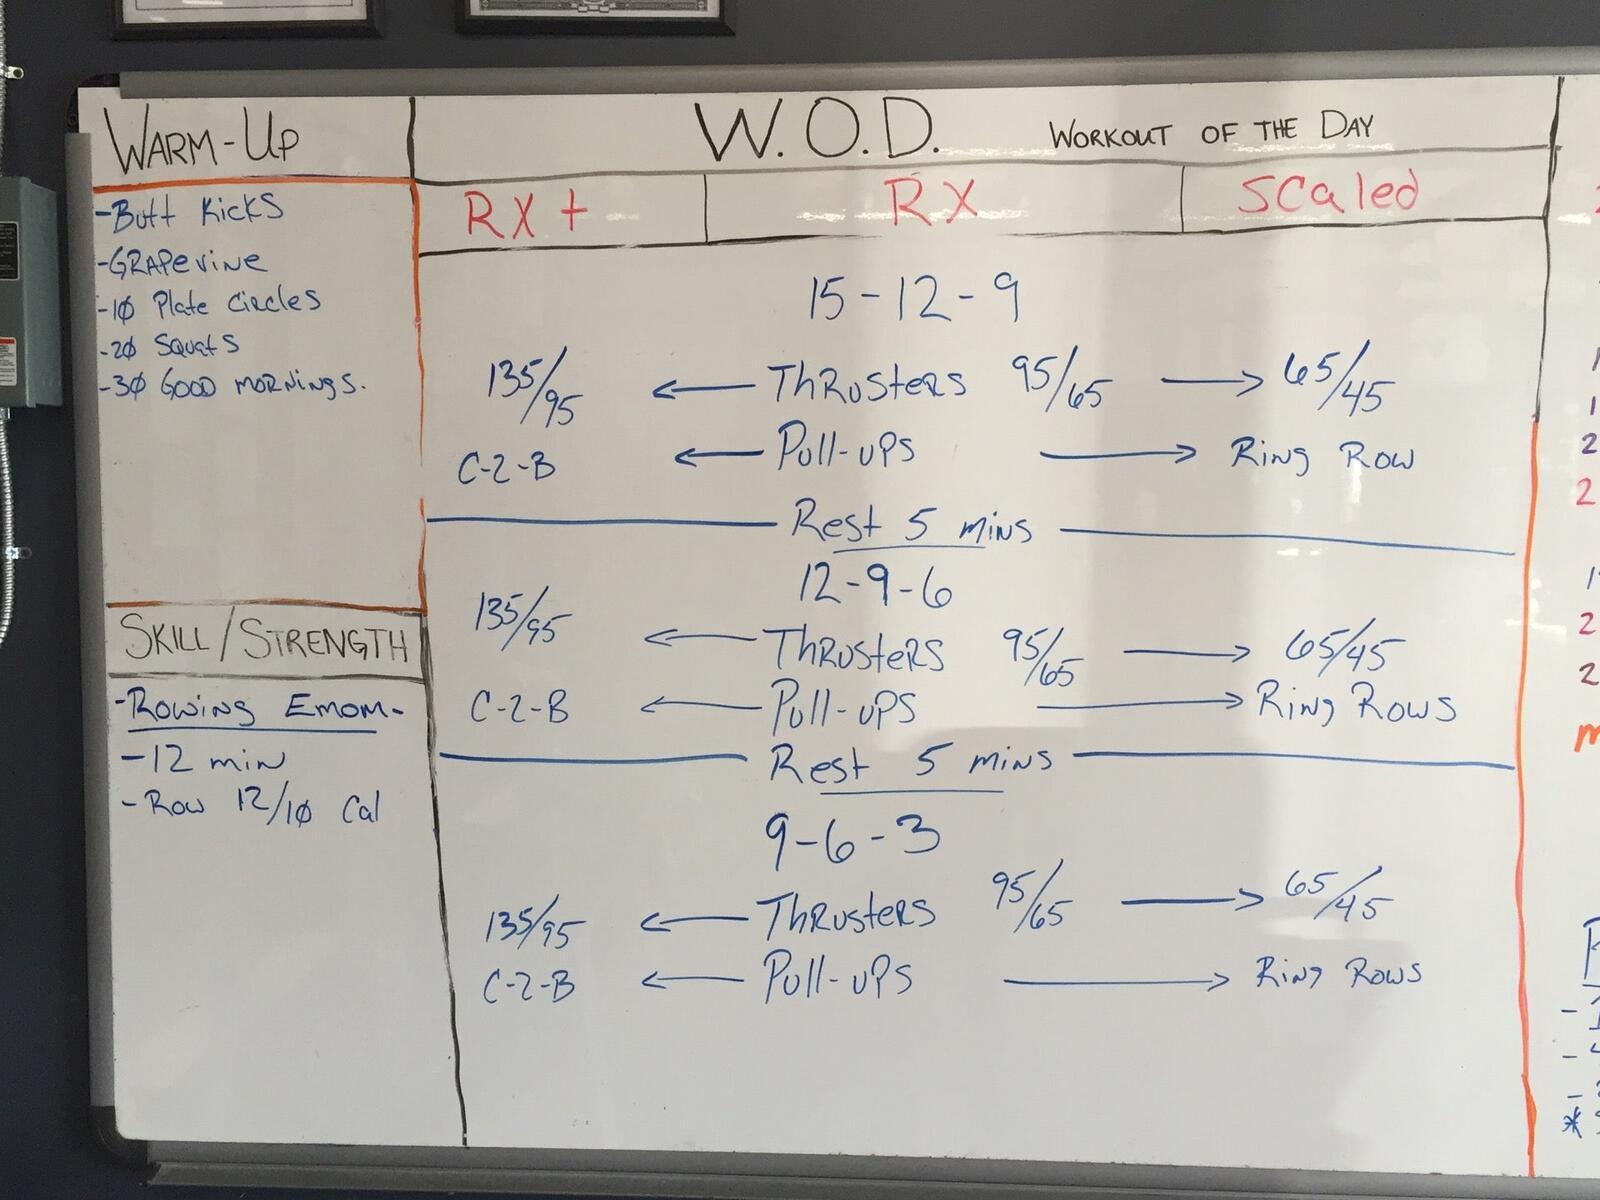 WARM-UP
-Butt Kicks
-GRAPevine
-10 Plate Circles
-20 Squats
-30 GOOD MORNINGS.
SKILL/STRENGTH
-Rowing Emom-
-12 min
-Row 12/10 Cal
W.O.D. WORKOUT OF THE DAY
RX+ RX SCaled
15-12-9
135/95 ← ThRusteRs 95/65 → 65/45
C-2-B ← Pull-ups → Ring Row
Rest 5 mins
12-9-6
135/95 ← ThRusteRs 95/65 → 65/45
C-2-B ← Pull-ups → Ring Rows
Rest 5 mins
9-6-3
135/95 ← ThRusteRs 95/65 → 65/45
C-2-B ← Pull-ups → Ring Rows